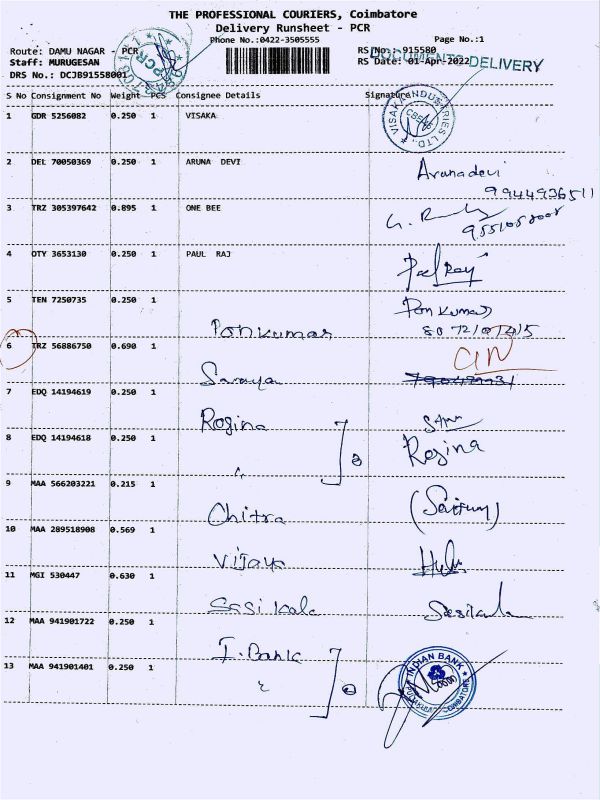 THE PROFESSIONAL COURIERS, Coimbatore
Delivery Runsheet - PCR
Phone No.:0422-3505555
Page No.:1
Route: DAMU NAGAR - PCR
RS No.: 915580
Staff: MURUGESAN
RS Date: 01-Apr-2022
DOCUMENTS DELIVERY
DRS No.: DCJB91558001
PCR
S No Consignment No Weight PCS Consignee Details Signature
1 GDR 5256082 0.250 1 VISAKA
VISAKA INDUSTRIES LTD.
2 DEL 70050369 0.250 1 ARUNA DEVI
Arunadevi
9944936511
3 TRZ 305397642 0.895 1 ONE BEE
4 OTY 3653130 0.250 1 PAUL RAJ
Paulraj
5 TEN 7250735 0.250 1
Ponkumar
Ponkumar
6 TRZ 56886750 0.690 1
Saranya
7 EDQ 14194619 0.250 1
Rogina
8 EDQ 14194618 0.250 1
"
Rogina
9 MAA 566203221 0.215 1
Chitra
10 MAA 289518908 0.569 1
Vijaya
11 MGI 530447 0.630 1
Sasikala
Sasikala
12 MAA 941901722 0.250 1
I. Bank
13 MAA 941901401 0.250 1
INDIAN BANK
COIMBATORE